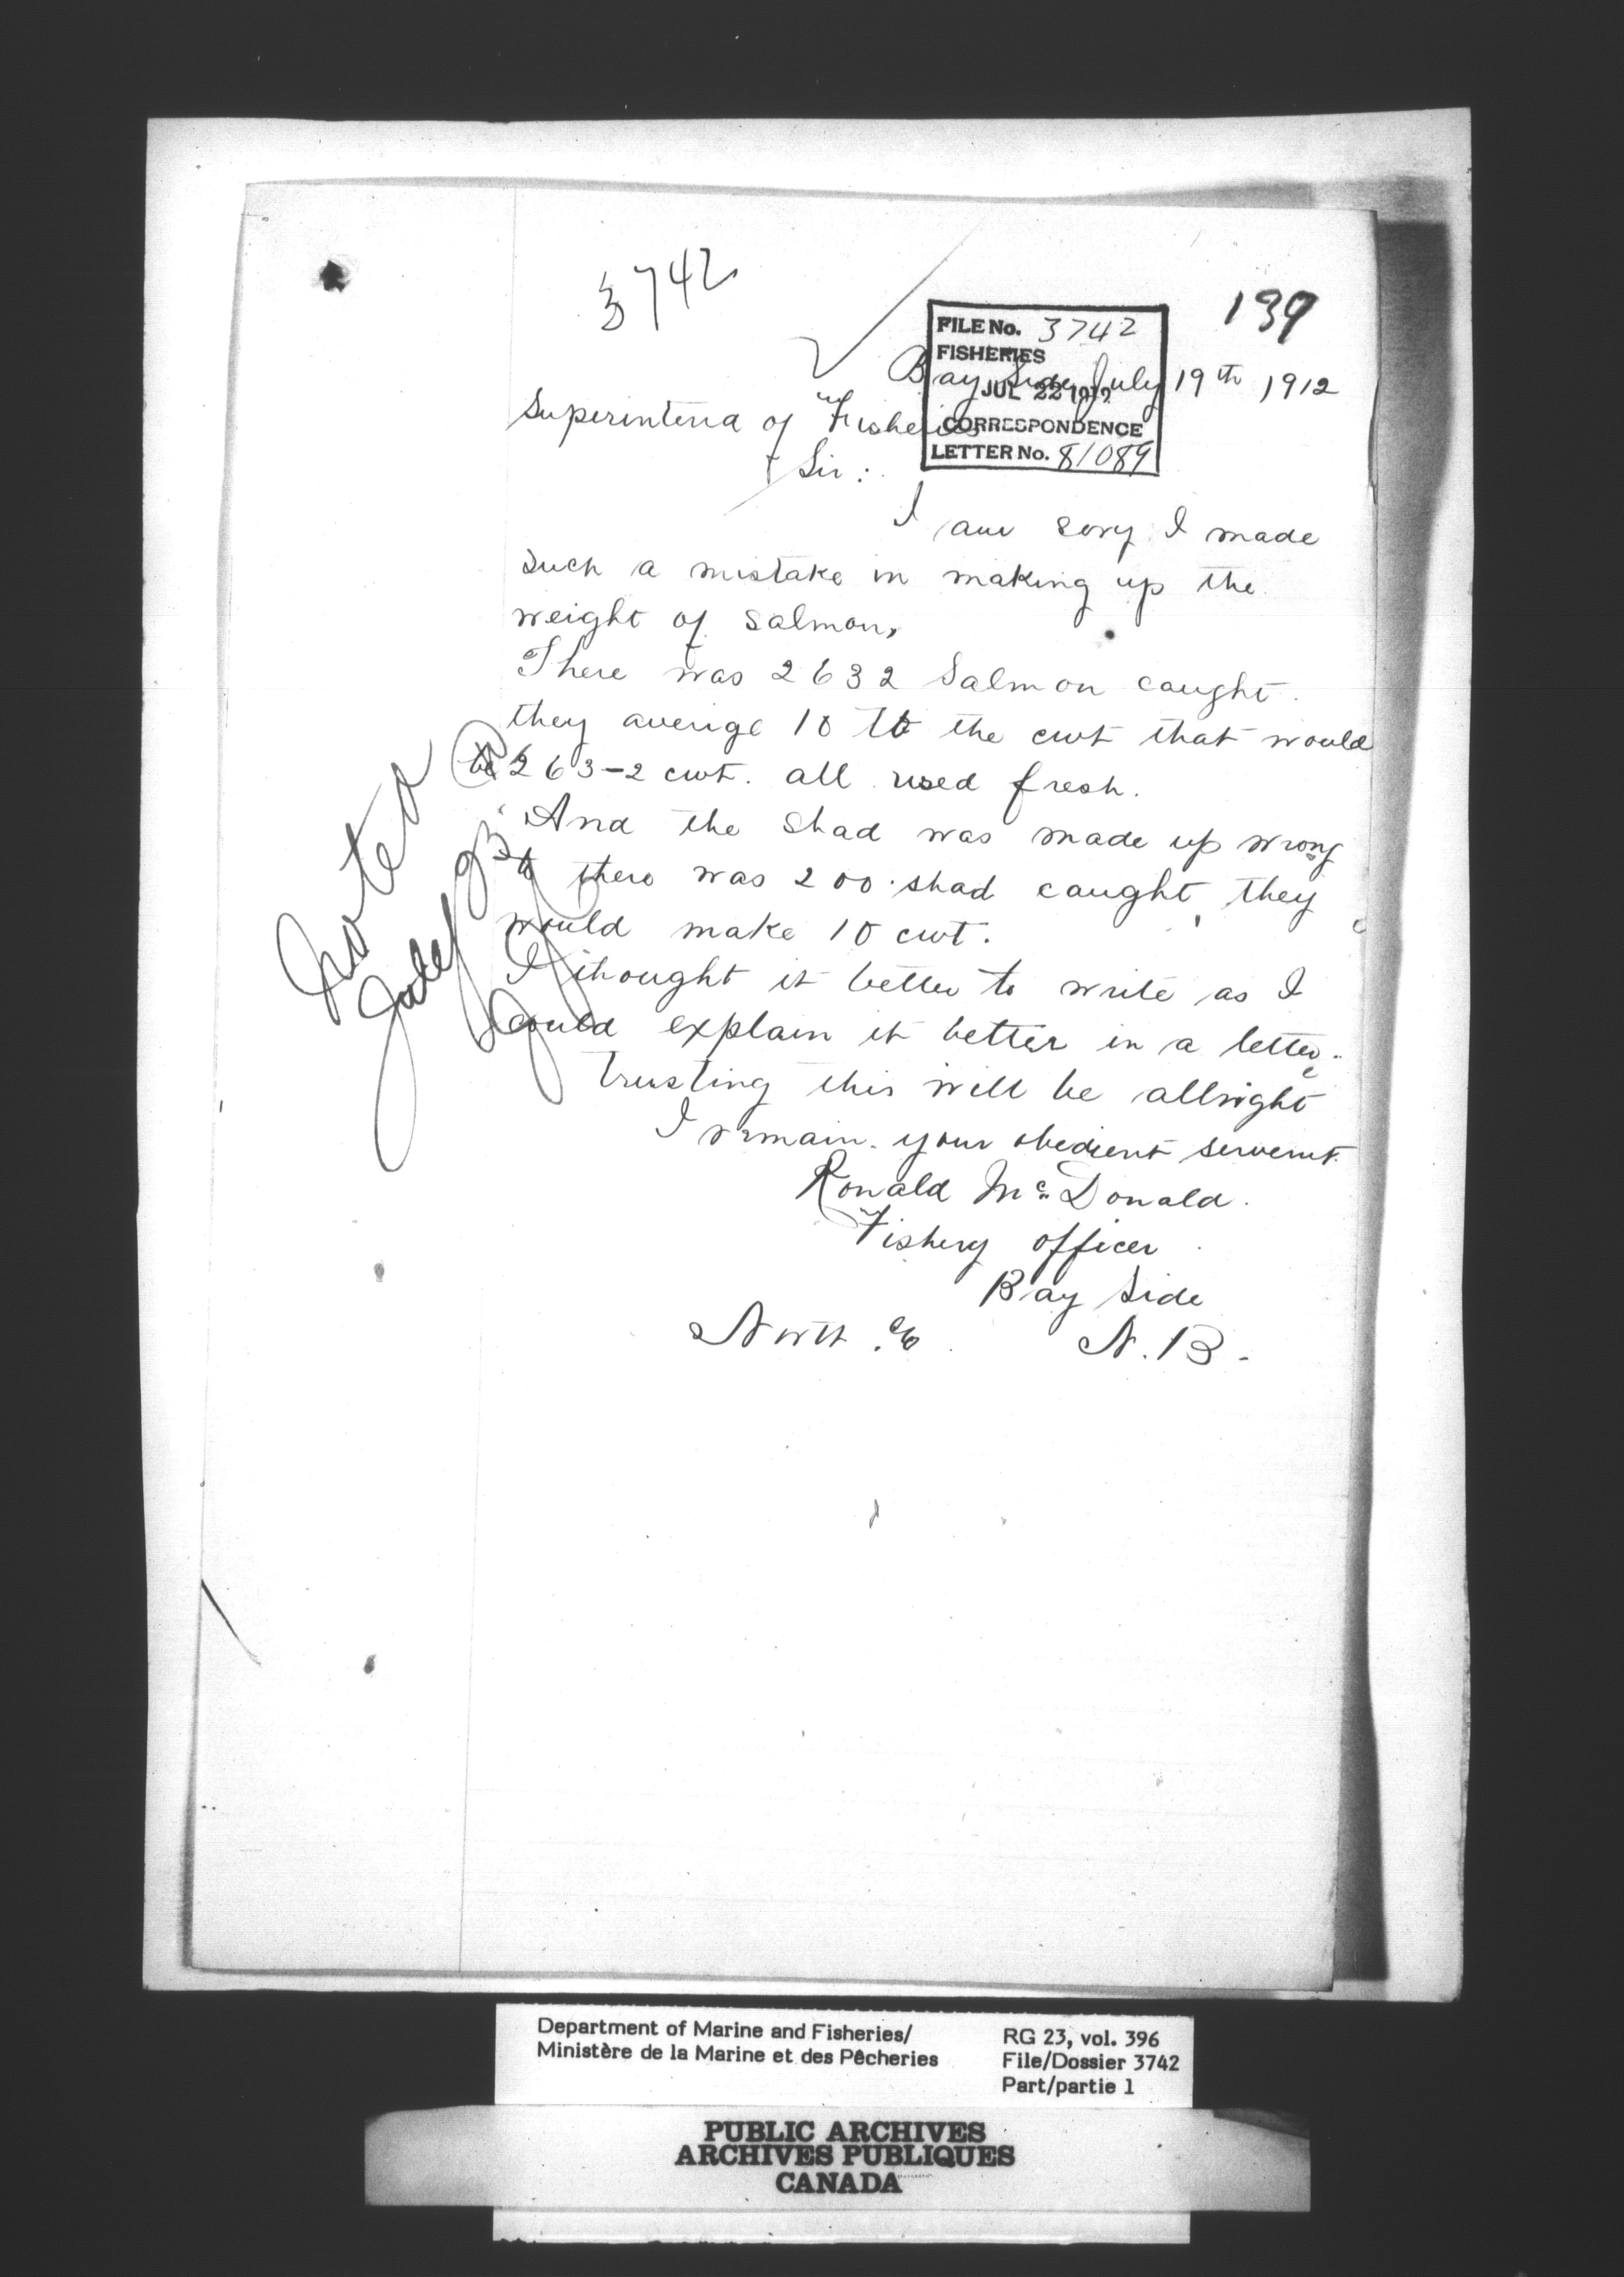 3742
139
FILE No. 3742
FISHERIES
JUL 22 1912
CORRESPONDENCE
LETTER No. 81089
Bay Side July 19th 1912
Superintend of Fisheries
Sir:
I am sory I made
such a mistake in making up the
weight of salmon,
There was 2632 Salmon caught.
they averige 10 to the cwt that would
be 263-2 cwt. all used fresh.
And the shad was made up wrong
there was 200 shad caught they
would make 10 cwt.
I thought it better to write as I
could explain it better in a letter.
Trusting this will be allright
I remain your obedient servent.
Ronald McDonald.
Fishery officer
Bay Side
North. Co. N.B.
Noted
July 23
Department of Marine and Fisheries/
Ministère de la Marine et des Pêcheries
RG 23, vol. 396
File/Dossier 3742
Part/partie 1
PUBLIC ARCHIVES
ARCHIVES PUBLIQUES
CANADA